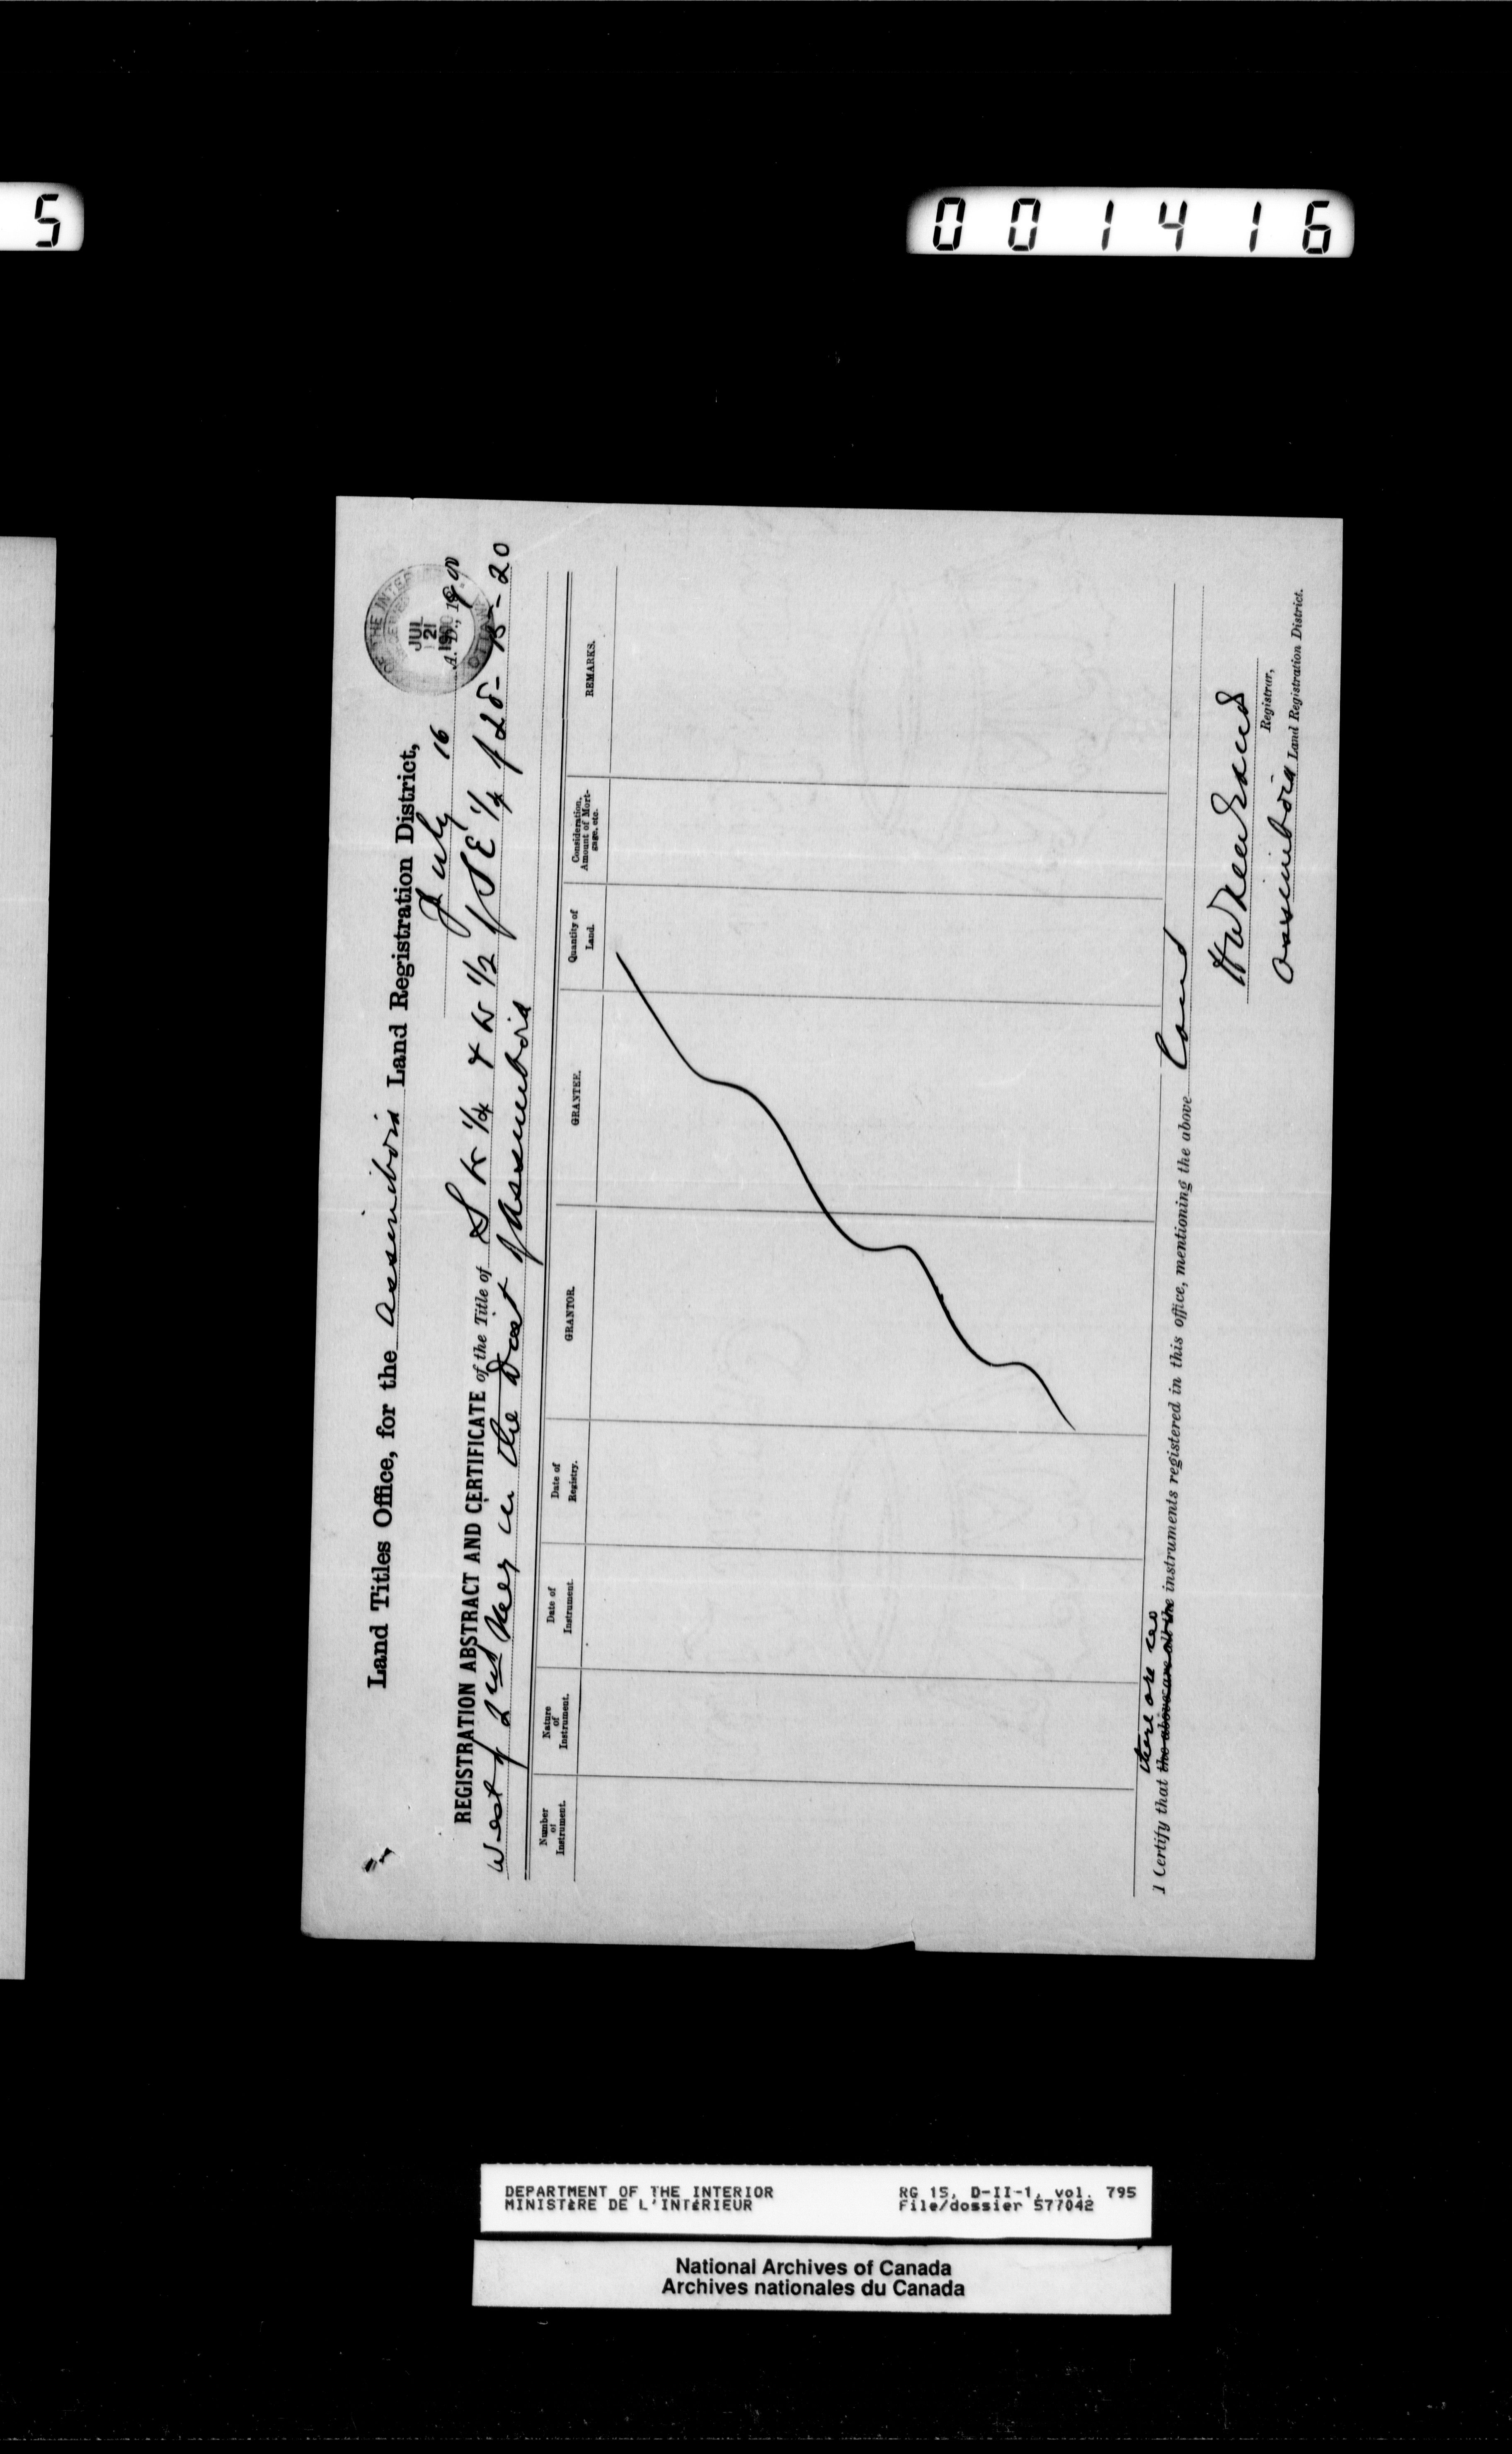 5
001416
Land Titles Office, for the Assiniboia Land Registration District,
OF THE INTER
JUL 21 1900
OTTAWA
July 16 A. D., 18
REGISTRATION ABSTRACT AND CERTIFICATE of the Title of S W 1/4 & W 1/2 of S E 1/4 of 28-15-20
West of 2nd Mer in the Dist of Assiniboia
Number of Instrument.
Nature of Instrument.
Date of Instrument.
Date of Registry.
GRANTOR.
GRANTEE.
Quantity of Land.
Consideration, Amount of Mortgage, etc.
REMARKS.
there are no
I Certify that the above are all the instruments registered in this office, mentioning the above Land
Registrar,
Assiniboia Land Registration District.
DEPARTMENT OF THE INTERIOR
MINISTÈRE DE L'INTÉRIEUR
RG 15, D-II-1, vol. 795
File/dossier 577042
National Archives of Canada
Archives nationales du Canada